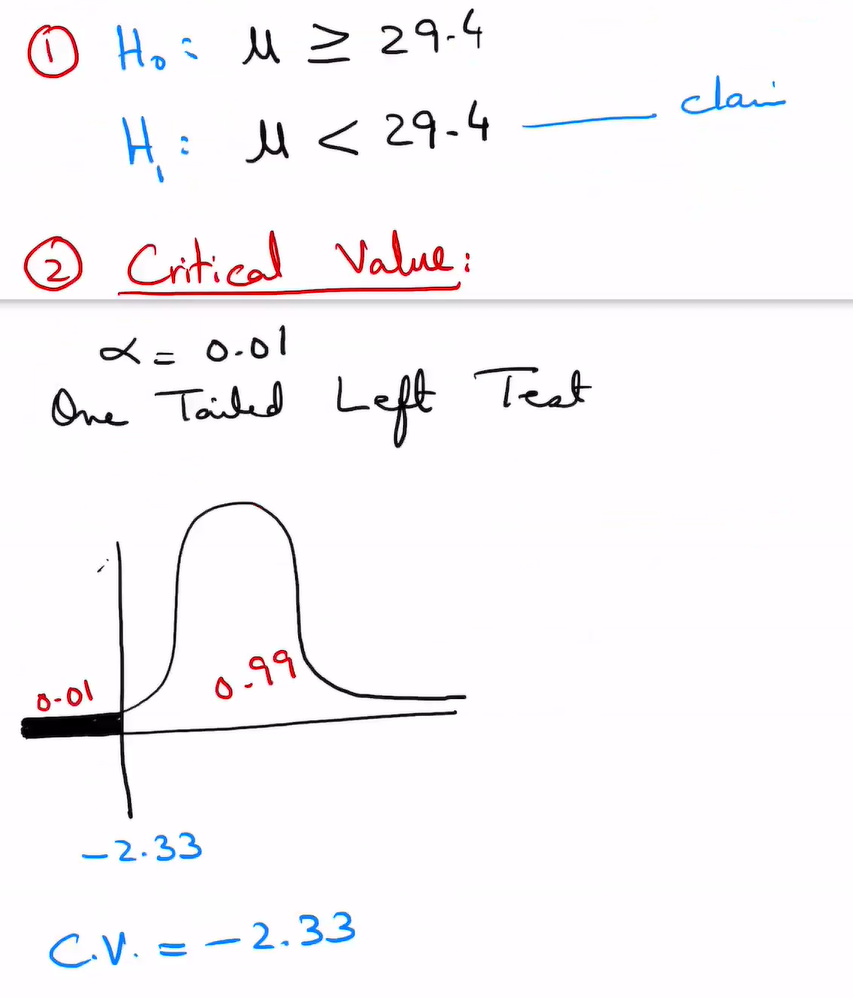 ① H₀: μ ≥ 29.4
H₁: μ < 29.4 —— clai
② Critical Value:
α = 0.01
One Tailed Left Test
0.01 0.99
-2.33
C.V. = -2.33